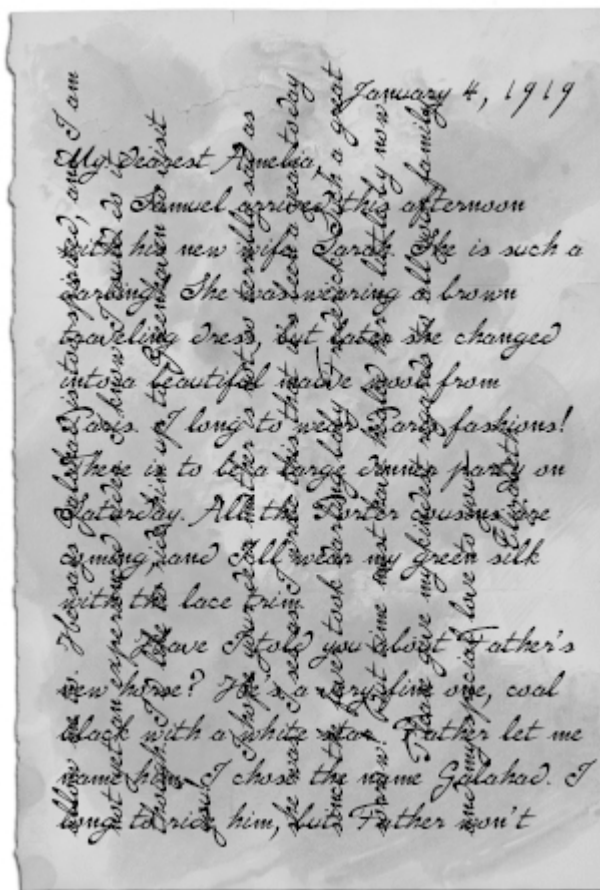 January 4, 1919
My Dearest Amelia,
Samuel arrived this afternoon
with his new wife, Sarah. She is such a
darling! She was wearing a brown
traveling dress, but later she changed
into a beautiful mauve wool from
Paris. I long to wear Paris fashions!
There is to be a large dinner party on
Saturday. All the Porter cousins are
coming, and I'll wear my green silk
with the lace trim.
Have I told you about Father's
new horse? He's a very fine one, coal
black with a white star. Father let me
name him. I chose the name Galahad. I
long to ride him, but Father won't
allow me to. He says Galahad is too spirited, and I am
not yet an experienced rider. I know I could do it
though. I'd like to ride him up to Greenhaven to visit
you!
I hope your dear mother's not so terribly sad as
she was. I write this that it has been a year today
since the took darling baby Frederick. Such a great
sorrow! time must have healed her a little by now.
Please give my kindest regards to all your family
and my special love to you.
Elizabeth